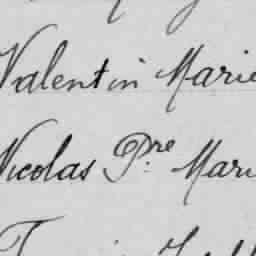 Valentin Marie
Nicolas Pre Mari